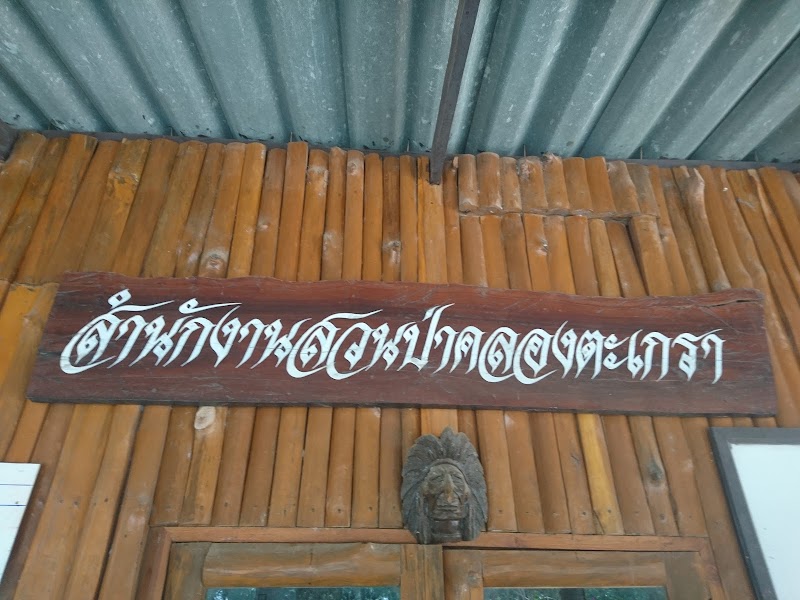 สำนักงานสวนป่าคลองตะเกรา